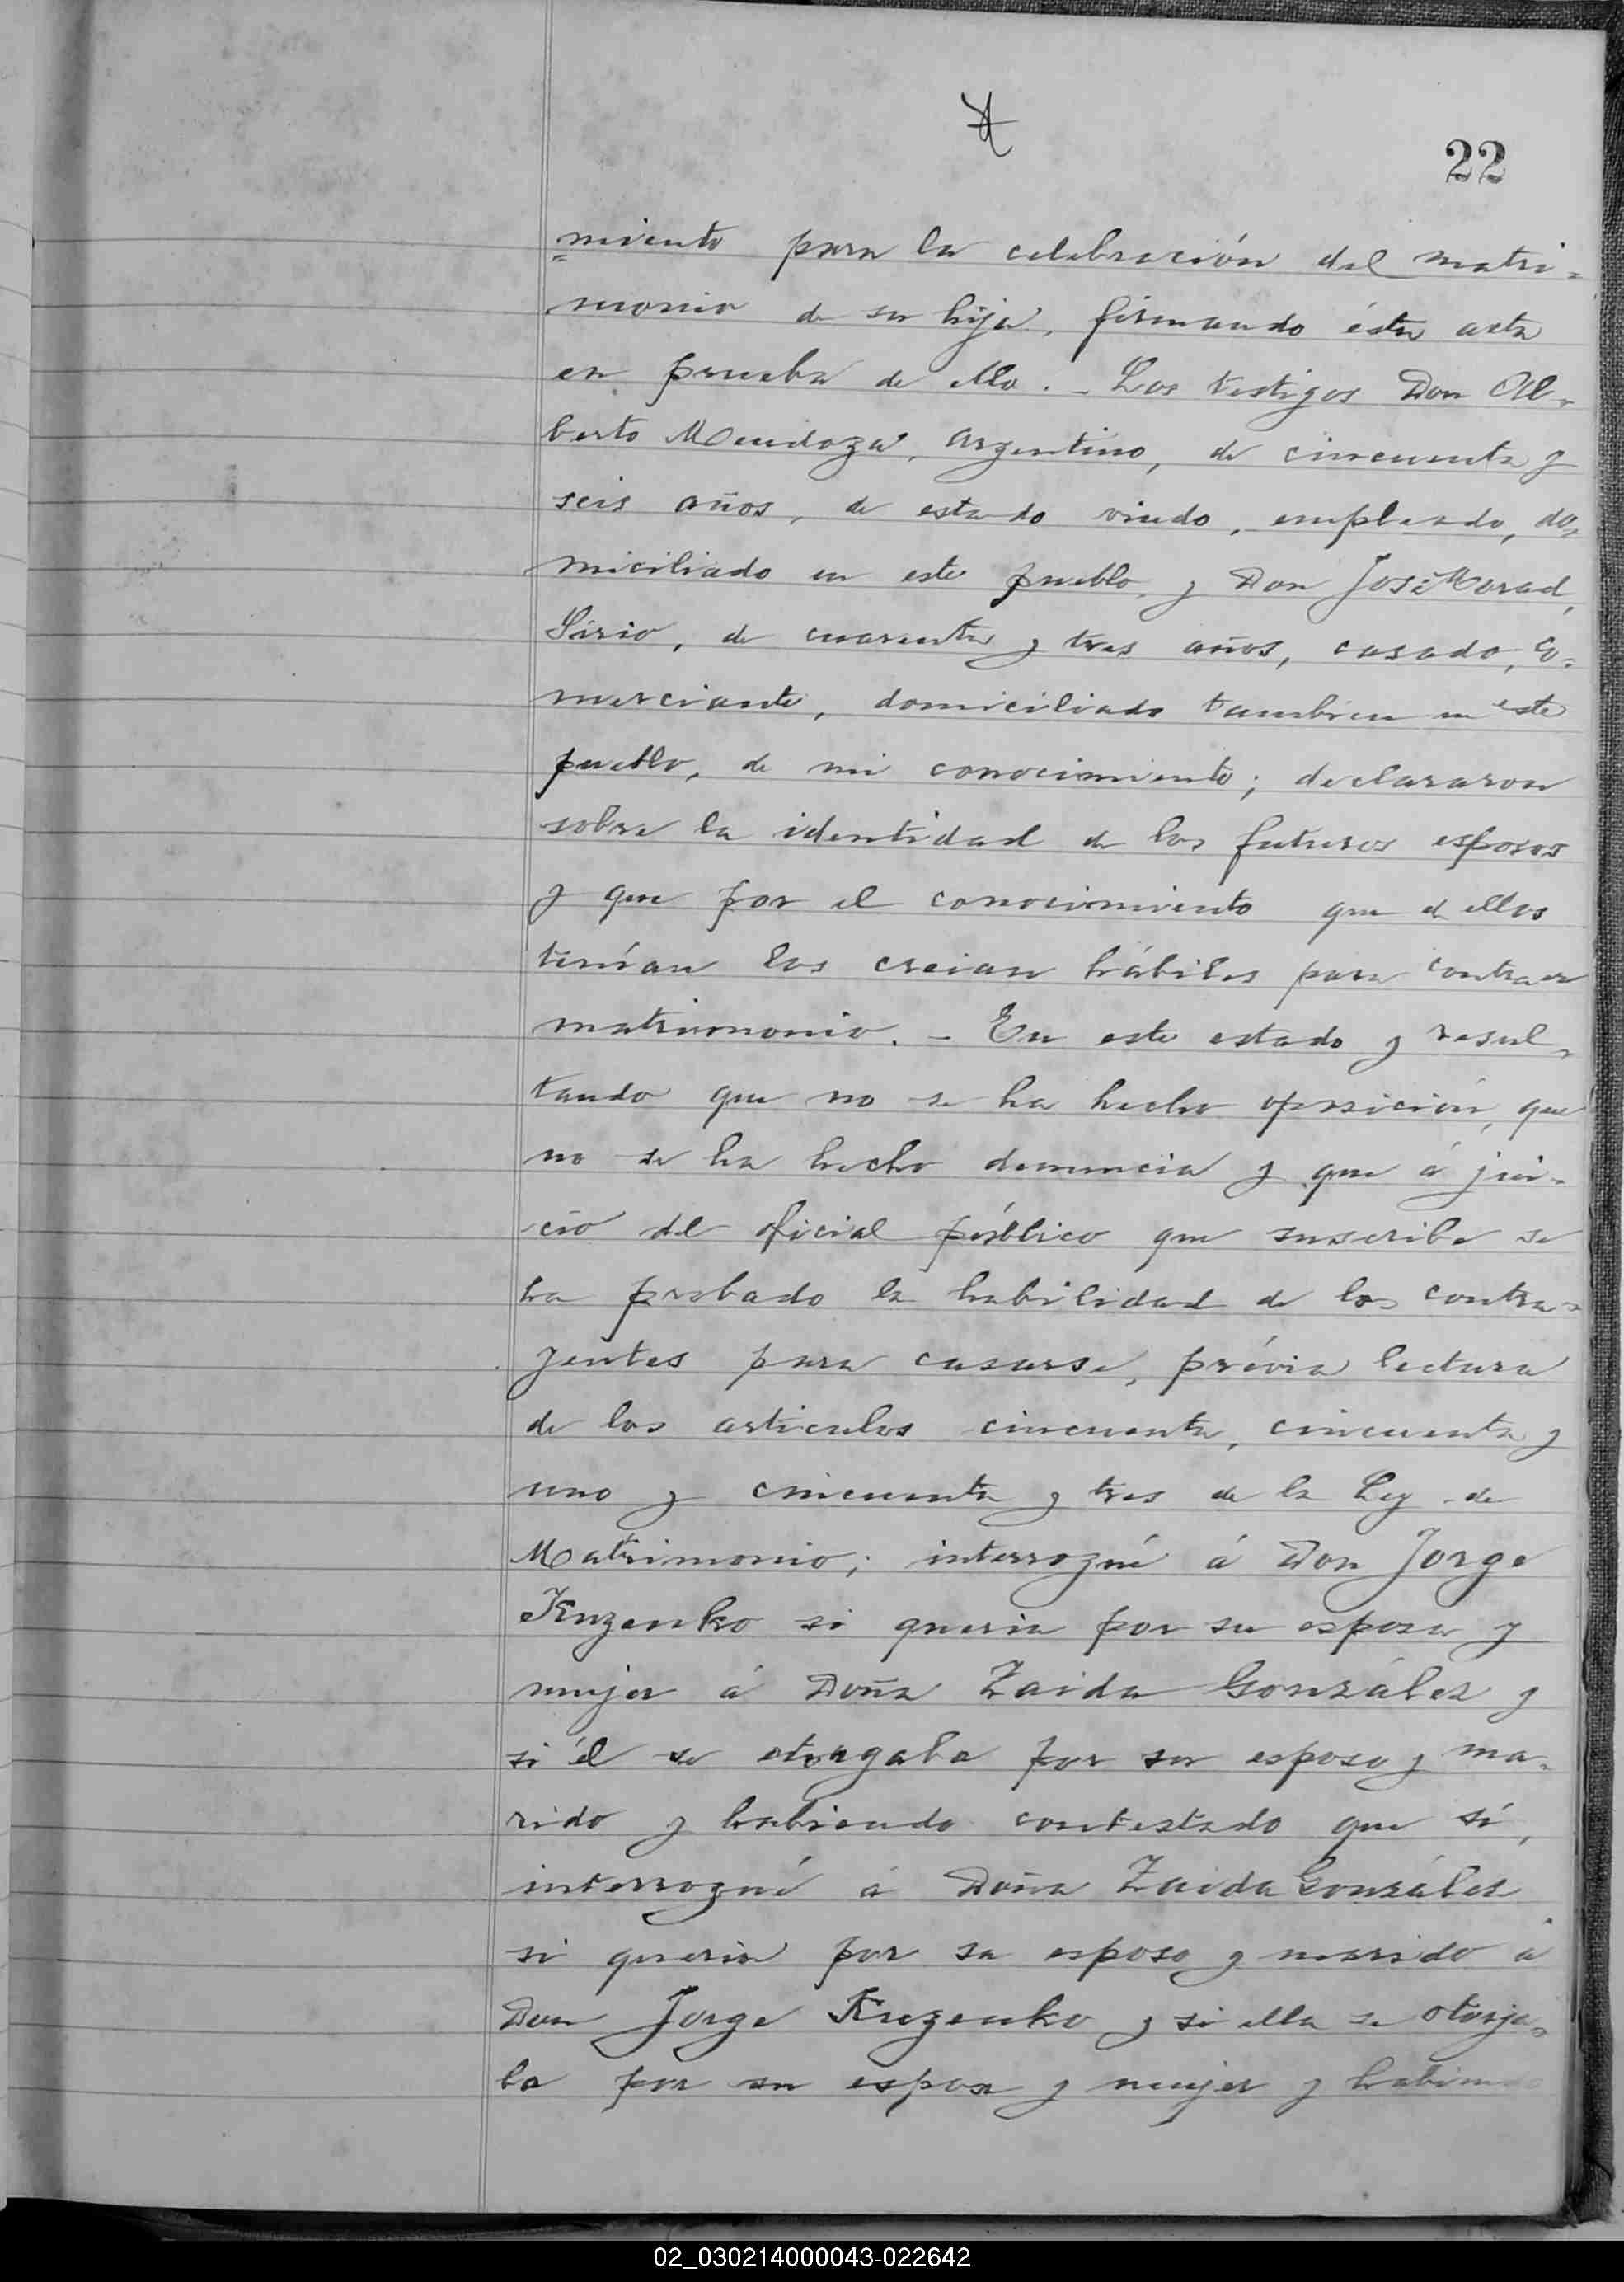 22
miento para la celebración del matri-
monio de su hija, firmando ésta acta
en prueba de ello. - Los testigos Don Al-
berto Mendoza, argentino, de cincuenta y
seis años, de estado viudo, empleado, do-
miciliado en este pueblo y Don José Morad,
Sirio, de cuarenta y tres años, casado, co-
merciante, domiciliado tambien en este
pueblo, de mi conocimiento; declararon
sobre la identidad de los futuros esposos
y que por el conocimiento que de ellos
tenían los creian hábiles para contraer
matrimonio. - En este estado y resul-
tando que no se ha hecho oposición, que
no se ha hecho denuncia y que á jui-
cio del oficial público que suscribe se
ha probado la habilidad de los contra-
yentes para casarse, prévia lectura
de los articulos cincuenta, cincuenta y
uno y cincuenta y tres de la Ley de
Matrimonio; interrogué á Don Jorge
Kuzenko si queria por su esposa y
mujer á Doña Zaida González y
si él se otorgaba por su esposo y ma-
rido y habiendo contestado que sí,
interrogué á Doña Zaida González
si queria por su esposo y marido á
Don Jorge Kuzenko y si ella se otorja-
ba por su esposa y mujer y habiendo
02_030214000043-022642